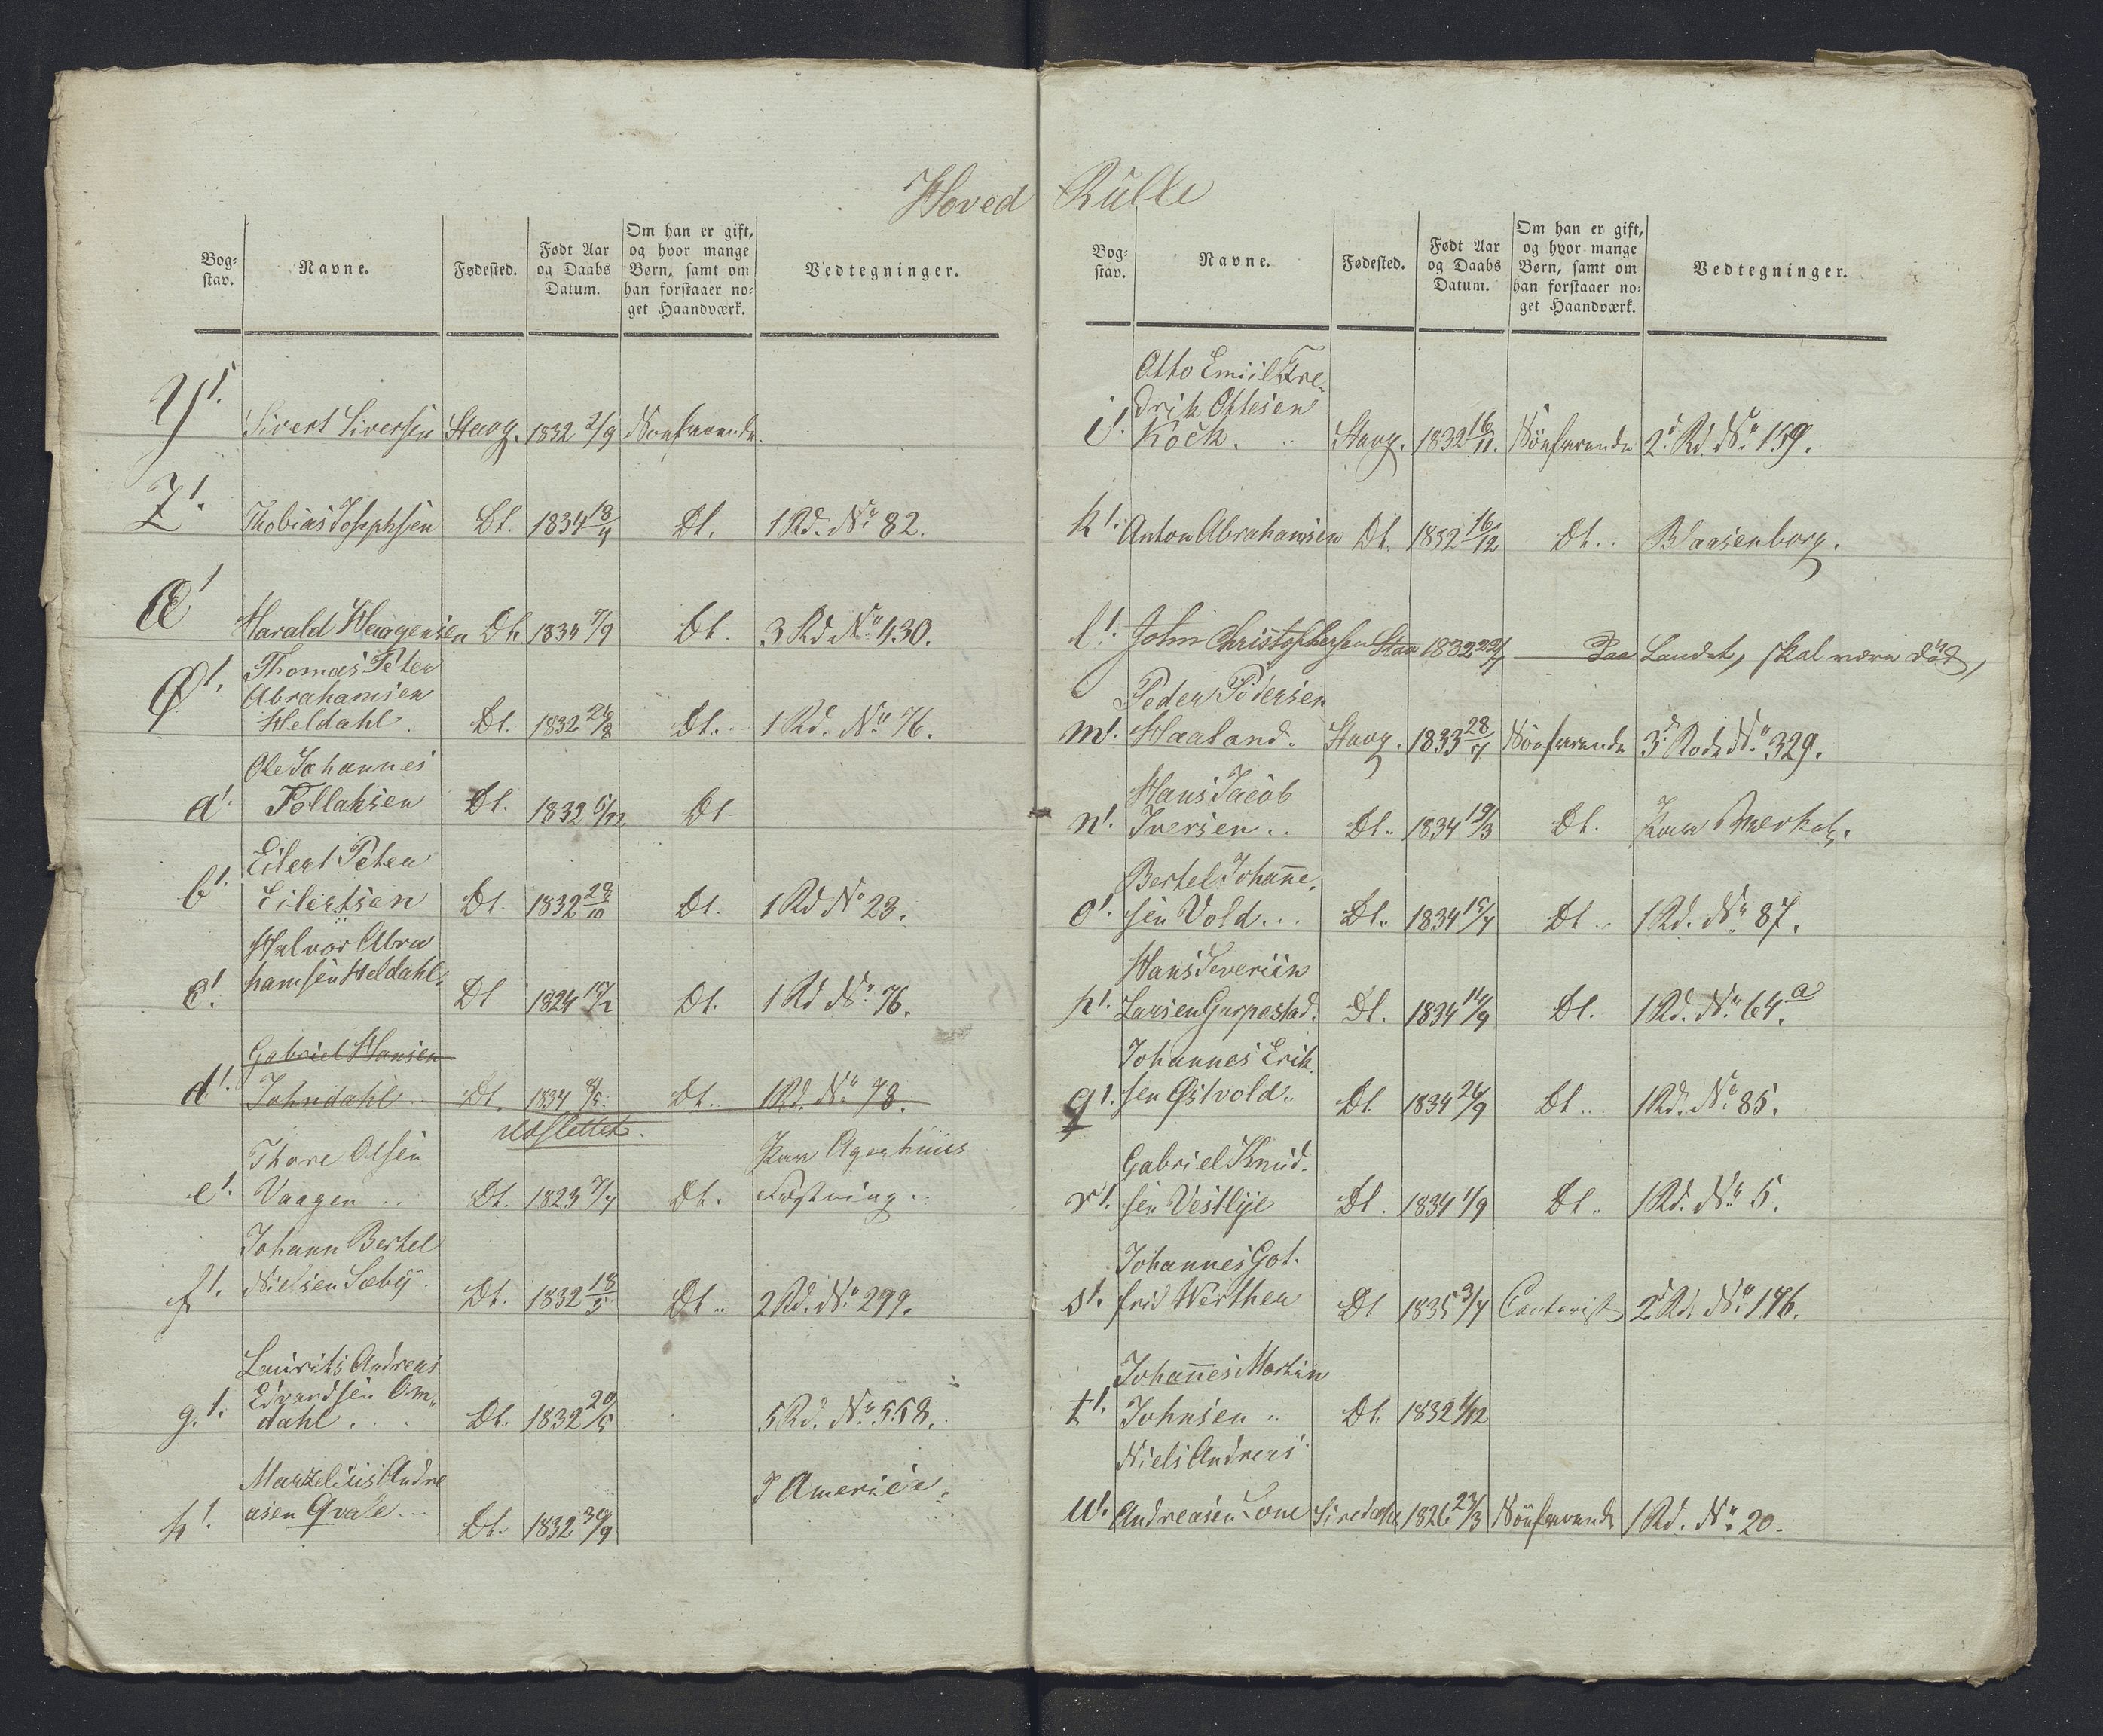 Hoved Rulle
Bog-
stav.
Navne.
Fødested.
Født Aar
og Daabs
Datum.
Om han er gift,
og hvor mange
Børn, samt om
han forstaaer no-
get Haandværk.
Vedtegninger.
Y1. Sivert Siversen Stavg. 1832 2/9 Sönfarende
Z1. Thobias Josephsen Dt. 1834 18/4 Dt. 1 Rd. No 82.
Æ1 Harald Haagensen Dt. 1834 7/9 Dt. 3 Rd No 430.
Thomas Peter
Ø1. Abrahamsen
Heldahl. Dt. 1832 26/8 Dt. 1 Rd. No 76.
Ole Johannes
a1. Tollaksen Dt. 1832 5/12 Dt.
Eilert Peter
b1. Eilertsen Dt. 1832 28/10 Dt. 1 Rd No 23.
Halvor Abra
c1. hamsen Heldahl. Dt 1824 15/2 Dt. 1 Rd No 76.
Gabriel Hansen
d1. Johndahl Dt. 1834 8/5 Dt. 1 Rd. No 78.
udslettet.
Thore Olsen
e1. Vaagen Dt. 1823 7/4 Dt. Paa Agershuus
Festning
Johann Bertel
f1. Nielsen Soeby. Dt. 1832 18/5 Dt. 2 Rd. No 299.
Laurits Andreas
Edvardsen Om-
g.1. dahl. Dt. 1832 20/5 5 Rd. No 558.
Marzelius Andre
h1. asen Qvale. Dt. 1832 30/9 I America.
Bog-
stav.
Navne.
Fødested.
Født Aar
og Daabs
Datum.
Om han er gift,
og hvor mange
Børn, samt om
han forstaaer no-
get Haandværk.
Vedtegninger.
Otto Emiil Fre-
drik Ottesen
i1. Kock. Stavg. 1832 16/11. Sönfarende 2d Rd. No 159.
k1. Anton Abrahamsen Dt. 1832 16/12 Dt. Blaasenborg.
l1. John Christophersen Stav 1832 22/7 Paa Landet, skal være död,
Peder Pedersen
m1. Haaland. Stavg. 1833 28/7 Sönfarende 3d Rode No 329.
Hans Jacob
n1. Iversen. Dt. 1834 19/3 Dt.
Bertel Johanne-
o1. sen Vold. Dt. 1834 15/4 Dt. 1 Rd. No 87.
Hans Severiin
p1. Larsen Gurpestad. Dt. 1834 14/9 Dt. 1 Rd. No 64.a
Johannes Erik-
q1. sen Østvold. Dt. 1834 24/9 Dt. 1 Rd. No 85.
Gabriel Knud-
r1. sen Vestlye Dt. 1834 1/9 Dt. 1 Rd. No 5.
Johannes Got-
s1. frid Werther Dt 1835 3/4 Contorist 2d Rd. No 176.
Johannes Martin
t1. Johnsen Dt. 1832 1/12
Niels Andreas
u1. Andreasen Lone Siredahl 1826 23/3 Sönfarende 1 Rd. No 20.